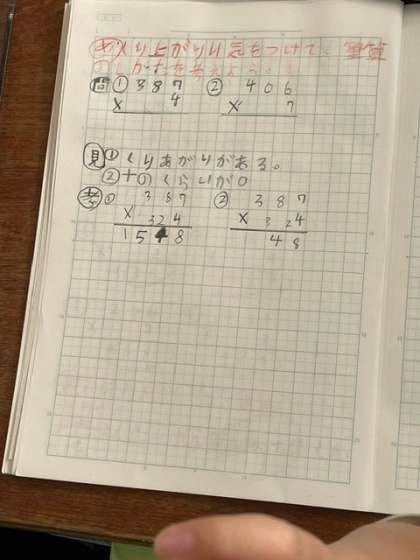 くり上がりに気をつけて、筆算
のしかたを考えよう。
問 ① 387 ② 406
× 4 × 7
見 ① くりあがりがある。
② 十のくらいが0
考 ① 387 ② 387
× 324 × 324
1548 48